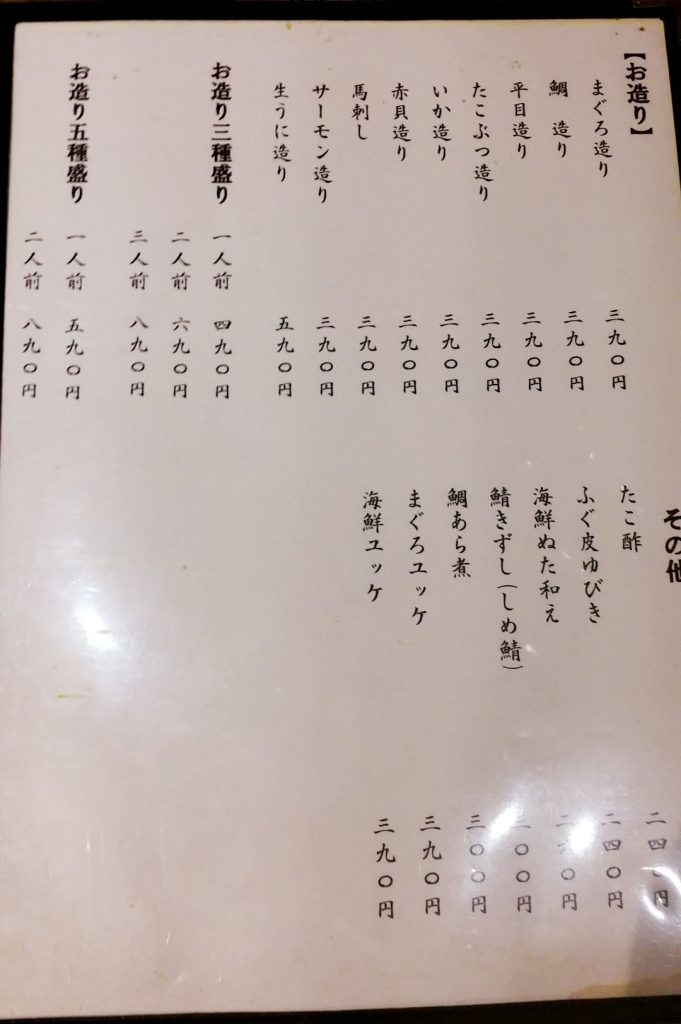 【お造り】
まぐろ造り 三九〇円
鯛 造り 三九〇円
平目造り 三九〇円
たこぶつ造り 三九〇円
いか造り 三九〇円
赤貝造り 三九〇円
馬刺し 三九〇円
サーモン造り 三九〇円
生うに造り 五九〇円
お造り三種盛り 一人前 四九〇円
二人前 六九〇円
三人前 八九〇円
お造り五種盛り 一人前 五九〇円
二人前 八九〇円
その他
たこ酢 二四〇円
ふぐ皮ゆびき 二四〇円
海鮮ぬた和え
鯖きずし(しめ鯖) 三〇〇円
鯛あら煮 三〇〇円
まぐろユッケ 三九〇円
海鮮ユッケ 三九〇円